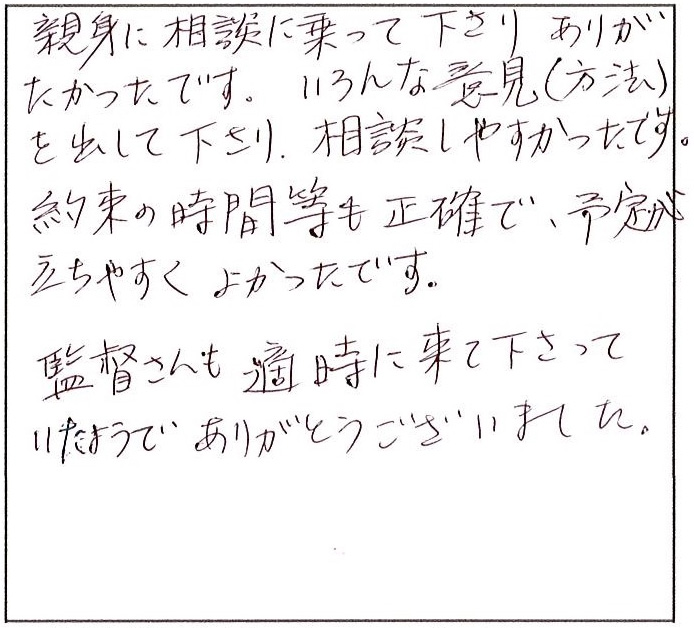 親身に相談に乗って下さり ありが
たかったです。いろんな意見(方法)
を出して下さり、相談しやすかったです。
約束の時間等も正確で、予定が
立ちやすく よかったです。
監督さんも 適時に来て下さって
いたようで ありがとうございました。